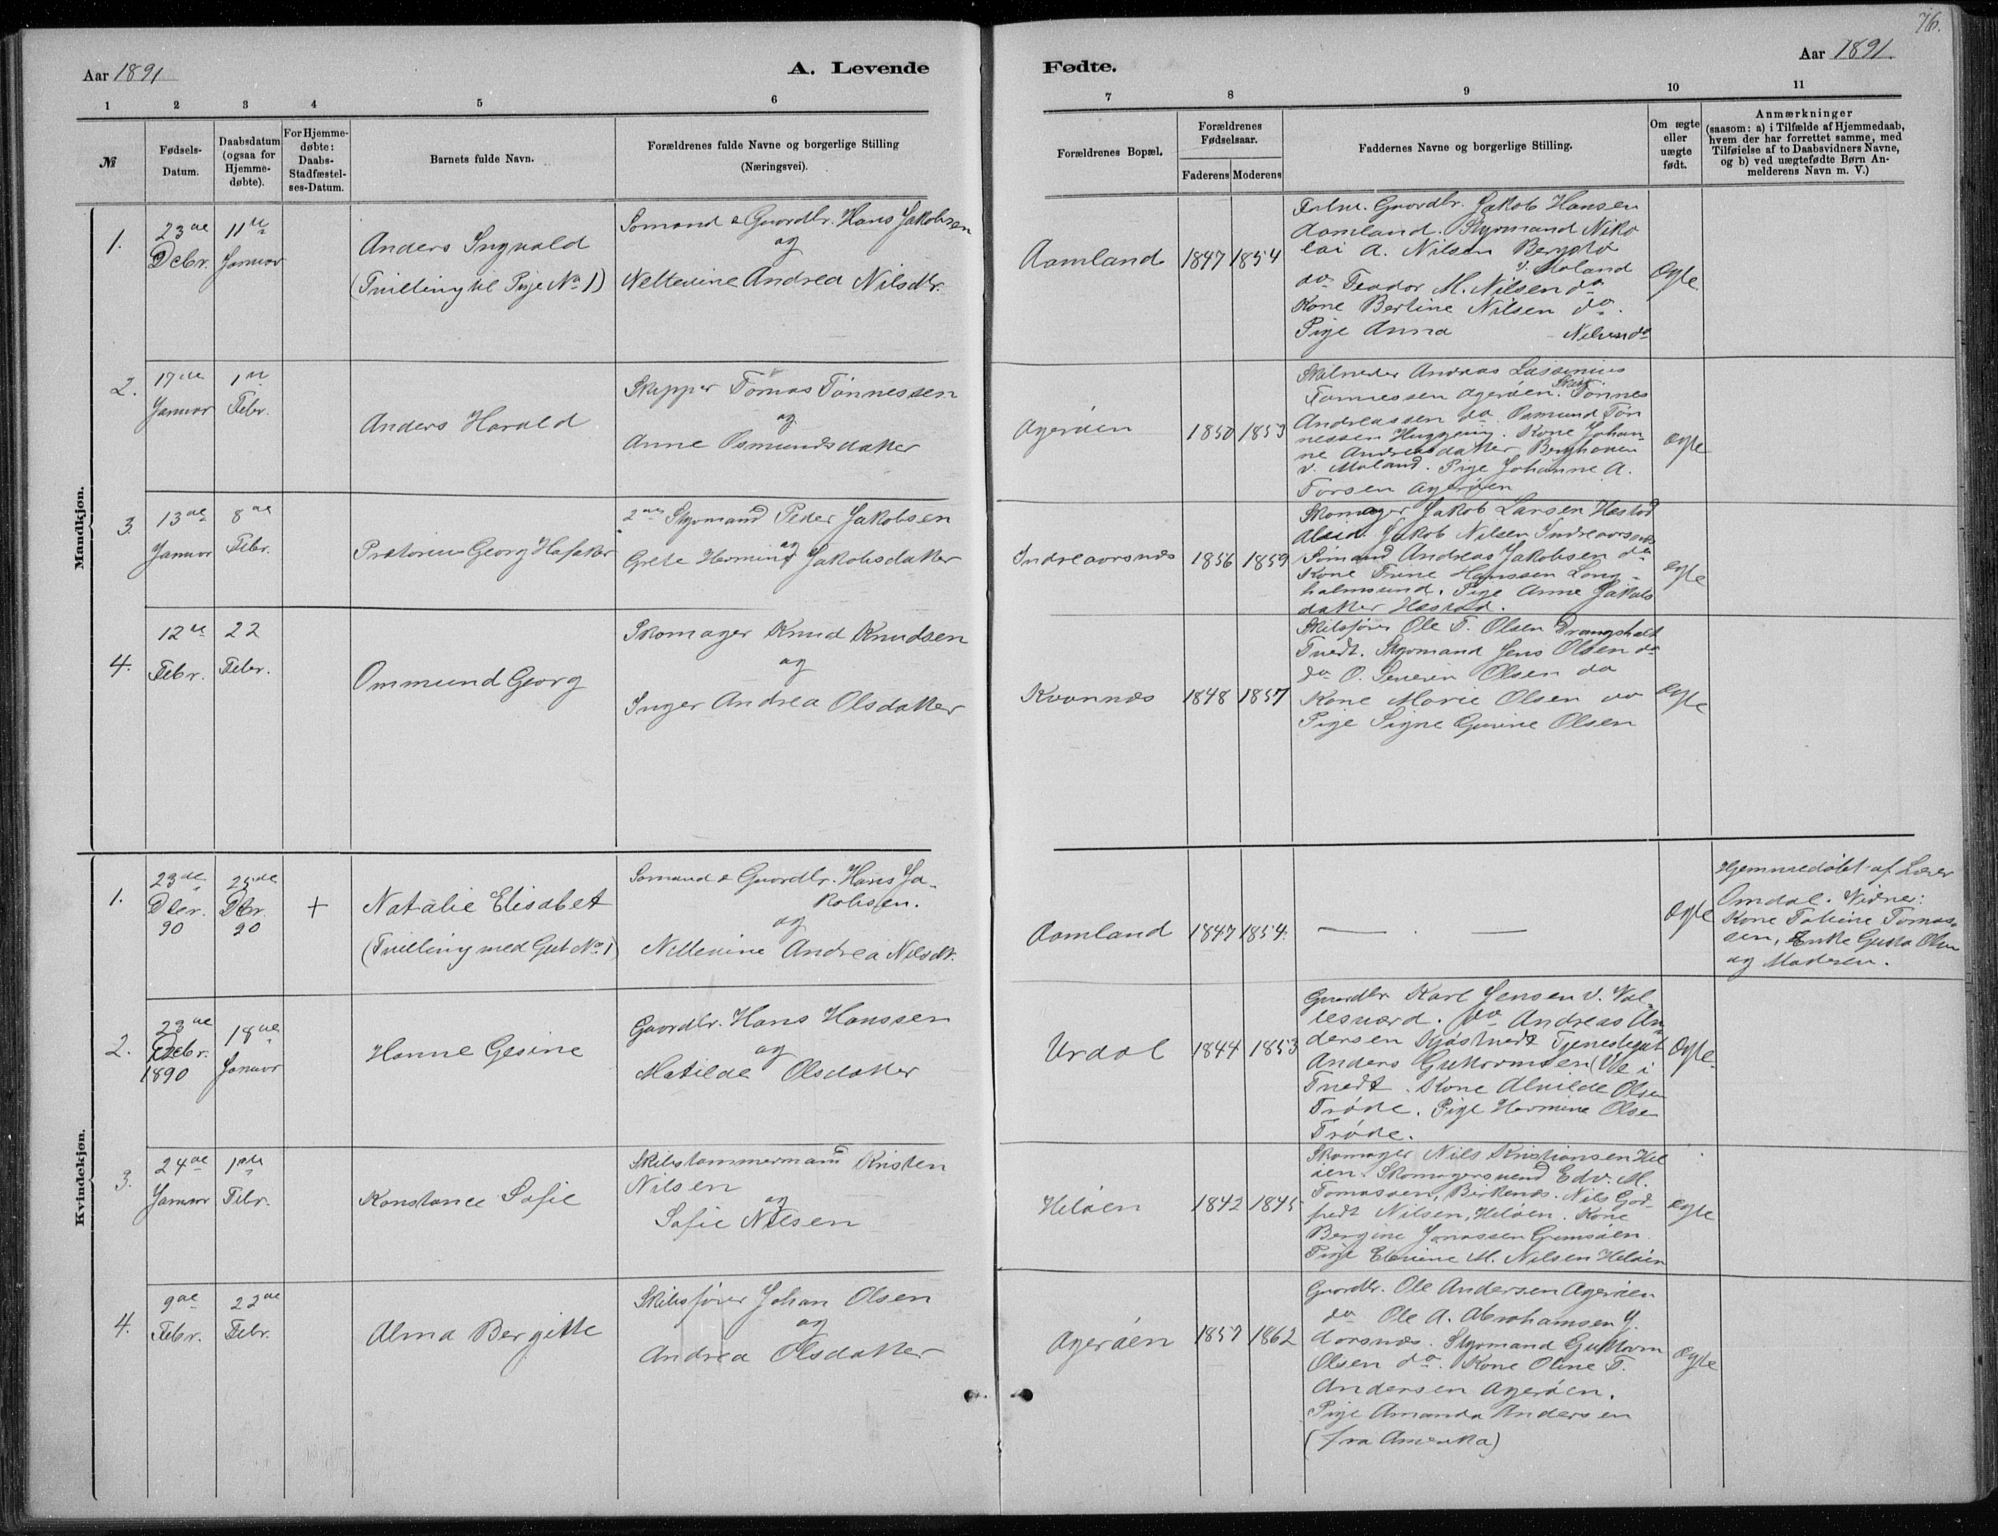 76.
Aar 1891
A. Levende
Fødte.
Aar 1891.
1 2 3 4 5 6
7 8 9 10 11
№
Fødsels-
Datum.
Daabsdatum
(ogsaa for
Hjemme-
døbte).
For Hjemme-
døbte:
Daabs-
Stadfæstel-
ses-Datum.
Barnets fulde Navn.
Forældrenes fulde Navne og borgerlige Stilling
(Næringsvei).
Forældrenes Bopæl.
Forældrenes
Fødselsaar.
Faderens Moderens
Faddernes Navne og borgerlige Stilling.
Om ægte
eller
uægte
født.
Anmærkninger
(saasom: a) i Tilfælde af Hjemmedaab,
hvem der har forrettet samme, med
Tilføielse af to Daabsvidners Navne,
og b) ved uægtefødte Børn An-
melderens Navn m. V.)
Mandkjøn.
1.
23de
Debr.
11te
Januar
Anders Ingvald
(Tvilling til Pige No 1)
Sømand & Gaardbr. Hans Jakobsen
og
Nellevine Andrea Nilsdtr.
Aamland
1847 1854
Gaardbr. Jakob Hansen
Aamland. Styrmand Niko
lai A. Nilsen
v. Moland
do Teodor M. Nilsen do
Kone Bertine Nilsen do.
Pige Anna Nilsen do
Ægte
2.
17de
Januar
1ste
Febr.
Anders Harald
Skipper Tomas Tønnessen
og
Anne Osmundsdatter
Agerøen
1850 1853
Andreas
Tønnessen Agerøen. Skip. Tønnes
Andreassen do Osmund Tøn
nessen. Kone Johan-
ne Andreasdatter
v. Moland. Pige Johanne A.
Torsen Agerøen
Ægte
3.
13de
Januar
8de
Febr.
Prætorius Georg Hafaker
2den Styrmand Peder Jakobsen
og
Grete Hermine Jakobsdatter
Indreaarsnæs
1856 1859
Skomager Jakob Larsen Hæstad
Jakob Nilsen Indreaarsnæs
Sømand Andreas Jakobsen do
Kone Trine Hanssen Lang-
holmsund. Pige Anne Jakobs
datter Hæstad.
Ægte
4.
12te
Febr.
22
Febr.
Ommund Georg
Skomager Knud Knudsen
og
Inger Andrea Olsdatter
Kvannæs
1848 1857
Skibsfører Ole T. Olsen Drangsholt
Tvedt. Styrmand Jens Olsen do
do O. Severin Olsen do
Kone Marie Olsen do
Pige Signe Gurine Olsen
Ægte
Kvindekjøn.
1.
23de
Dbr.
90
25de
Dbr.
90
+
Natalie Elisabet
(Tvilling med Gut No. 1)
Sømand & Gaardbr. Hans Ja-
kobsen.
og
Nellevine Andrea Nilsdtr.
Aamland
1847 1854.
— . —
Ægte
Hjemmedøbt af Lærer
Omdal. Vidner:
Kone Taline Tomas-
sen, Enke Gusta Olsen
og Moderen.
2.
23de
Debr.
1890
18de
Januar
Hanne Gesine
Gaardbr. Hans Hanssen
og
Matilde Olsdatter
Urdal
1844 1853
Gaardbr Karl Jensen v. Val-
lesværd. do Andreas An-
dersen Sydtvedt Tjenestegut
Anders Guttormsen
Tvedt. Kone Alvilde Olsen
Trøde. Pige Hermine Olsen
Trøde.
Ægte.
3.
24de
Januar
1ste
Febr.
Konstance Sofie
Skibstømmermand Kristen
Nilsen
og
Sofie Nilsen
Heløen
1842 1845
Skomager Nils Kristiansen Hel
øen. Skomagersvend Edv. M.
Tomassen, Birkenæs. Nils God-
fredt Nilsen, Heløen. Kone
Bergine Jonassen Grimsøen
Pige Elevine M. Nilsen Heløen
Ægte
4.
9de
Febr.
22de
Febr.
Alma Bergitte
Skibsfører Johan Olsen
og
Andrea Olsdatter
Agerøen
1857 1862
Gaardbr. Ole Andersen Agerøen
do Ole A. Abrahamsen Y.
Aarsnæs. Styrmand Guttorm
Olsen do. Kone Oline T.
Andersen Agerøen.
Pige Amanda Andersen
(fra Amerika)
Ægte